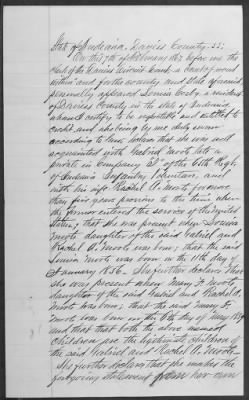 State of Indiana, Daviess County SS:
On this 7th of February 186 before me the
Clerk of the Daviess Circuit Court, a Court of record
within and for the county and State aforesaid
personally appeared Louisa a resident
of Daviess County in the State of Indiana
whom I certify to be respectable and entitled to
credit and she being by me duly sworn
according to law, declares that she was well
acquainted with Gabriel Moots late a
private in Company "D" of the 65th Regt.
of Indiana Infantry Volunteers, and
with his wife Rachel A. Moots for more
than five years previous to the time when
the former entered the service of the United
States; that she was present when Louisa
Moots daughter of the said Gabriel and
Rachel A. Moots was born; that the said
Louisa Moots was born on the 11th day of
January 1856. She further declares that
she was present when Mary F. Moots
daughter of the said Gabriel and Rachel A.
Moots was born; that the said Mary F.
Moots was born on the 6th day of May 18
and that that both the above named
children are the legitimate children of
the said Gabriel and Rachel A. Moots
She further declares that she makes the
foregoing statement from her own